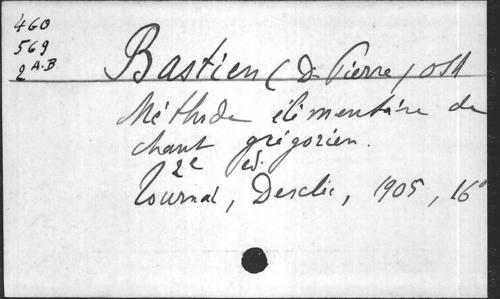 460
569
2 A.B
Bastien (D. Pierre) OSB
Méthode élémentaire de
chant grégorien.
2e ed.
Tournai, Desclée, 1905, 16°